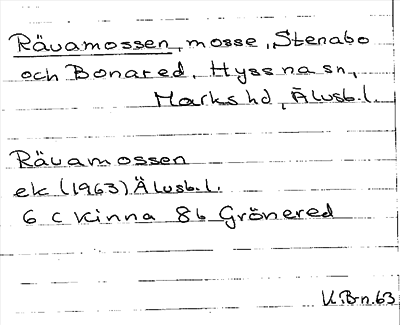 Rävamossen, mosse, Stenabo
och Bonared, Hyssna sn,
Marks hd, Älvsb.l.
Rävamossen
ek (1963) Älvsb.l.
6 C Kinna 8b Grönered
K.Bn.63